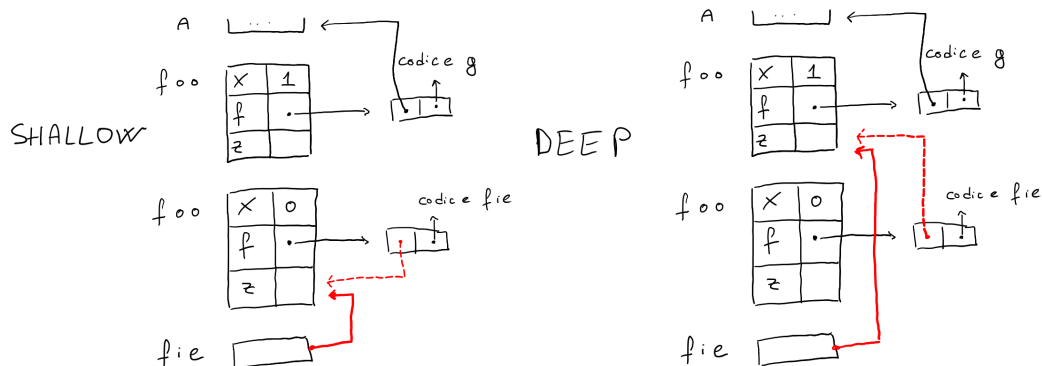 SHALLOW
A ...
codice g
foo
x 1
f
z
foo
x 0
f
z
codice fie
fie
DEEP
A ...
codice g
foo
x 1
f
z
foo
x 0
f
z
codice fie
fie